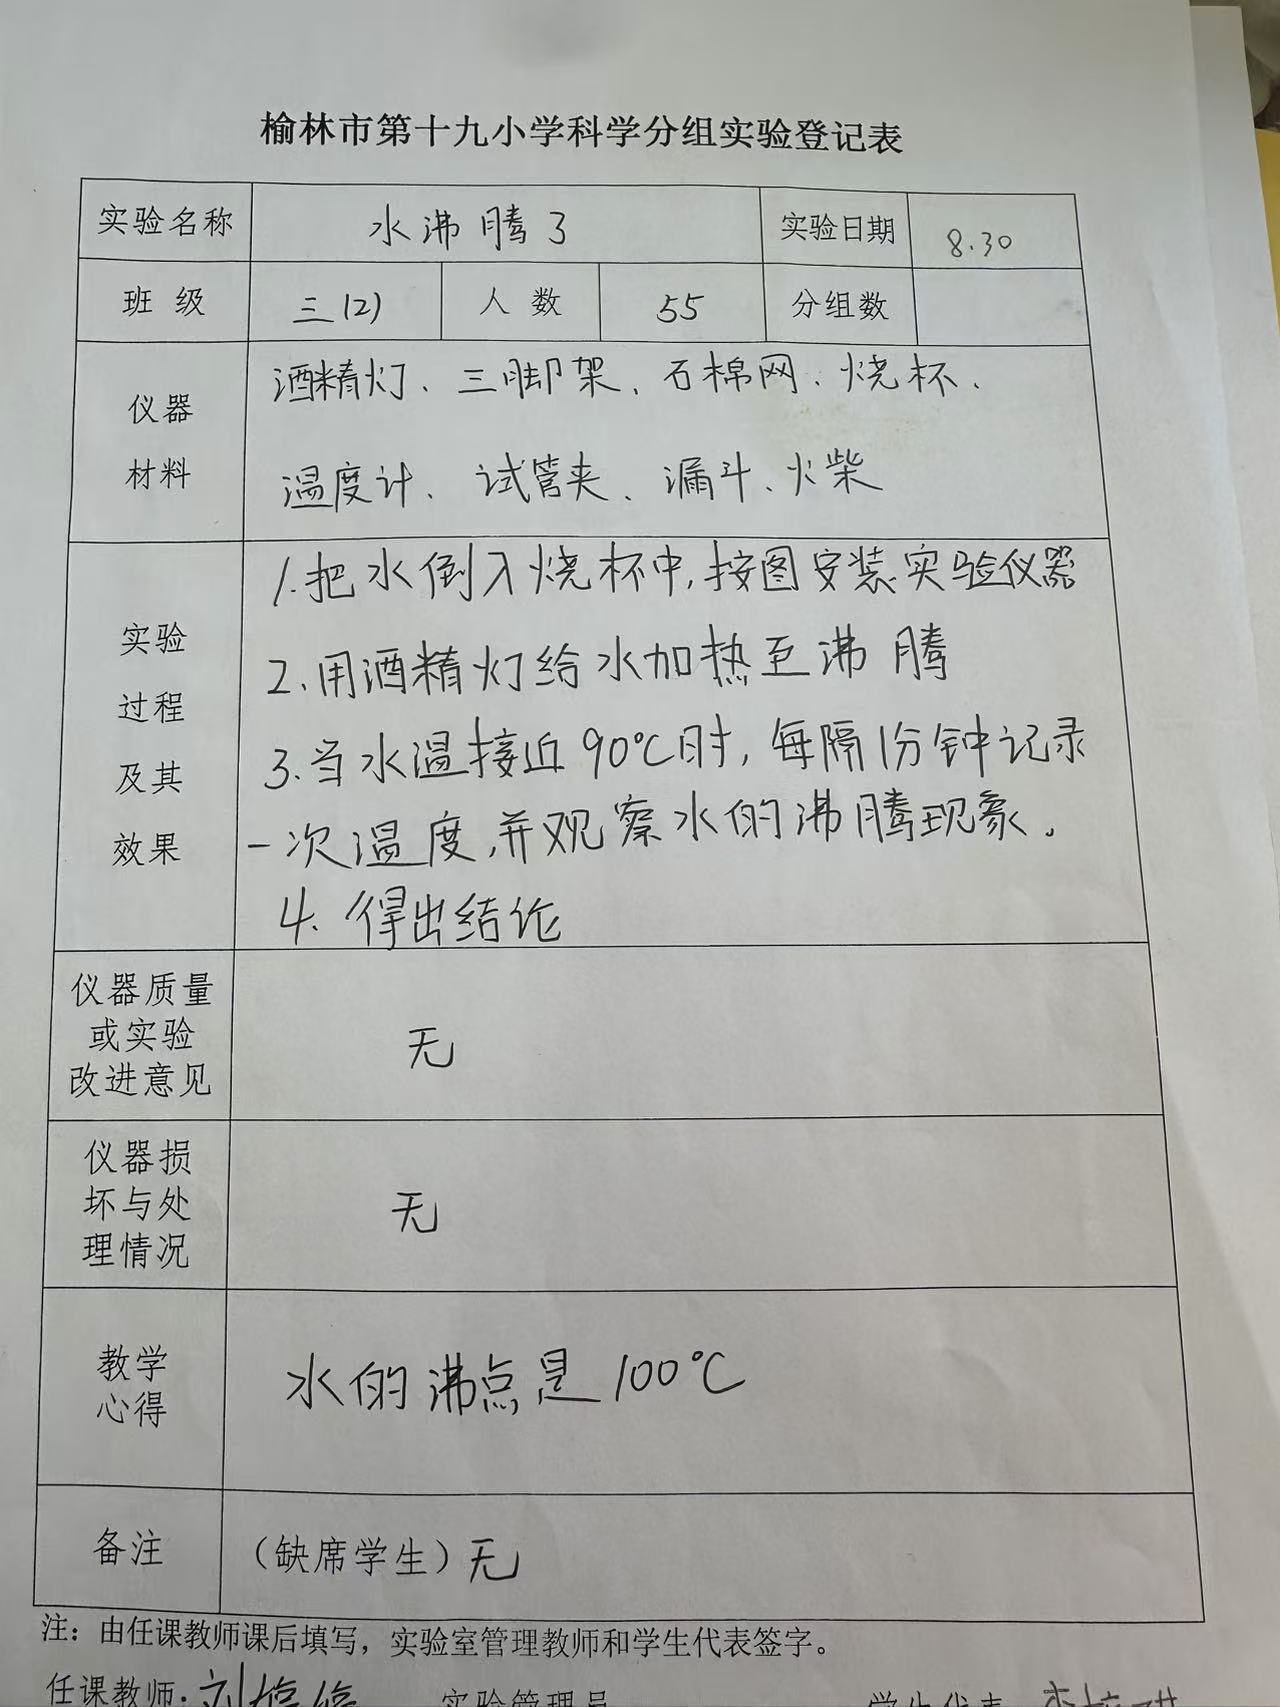 榆林市第十九小学科学分组实验登记表
实验名称 水沸腾3 实验日期 8.30
班级 三(2) 人数 55 分组数
仪器
材料
酒精灯、三脚架、石棉网、烧杯、
温度计、试管夹、漏斗、火柴
实验
过程
及其
效果
1.把水倒入烧杯中,按图安装实验仪器
2.用酒精灯给水加热至沸腾
3.当水温接近90℃时,每隔1分钟记录
一次温度,并观察水的沸腾现象.
4.得出结论
仪器质量
或实验
改进意见
无
仪器损
坏与处
理情况
无
教学
心得
水的沸点是100℃
备注 (缺席学生)无
注：由任课教师课后填写，实验室管理教师和学生代表签字。
任课教师: 刘 实验管理员 学生代表